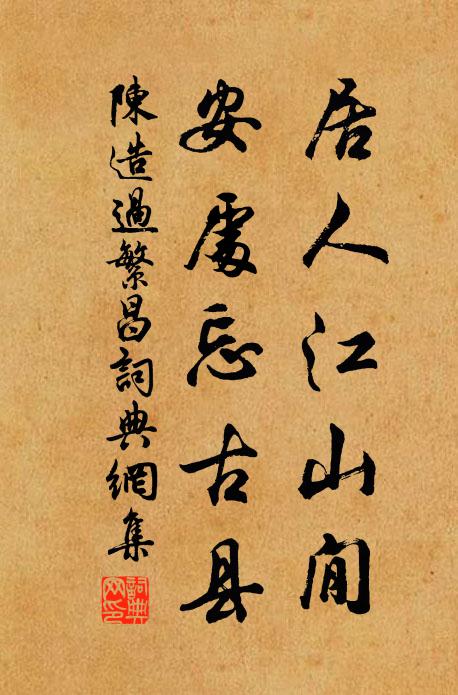 居人江山間
安處忘古县
陳造過繁昌詞典網集
詞典網印